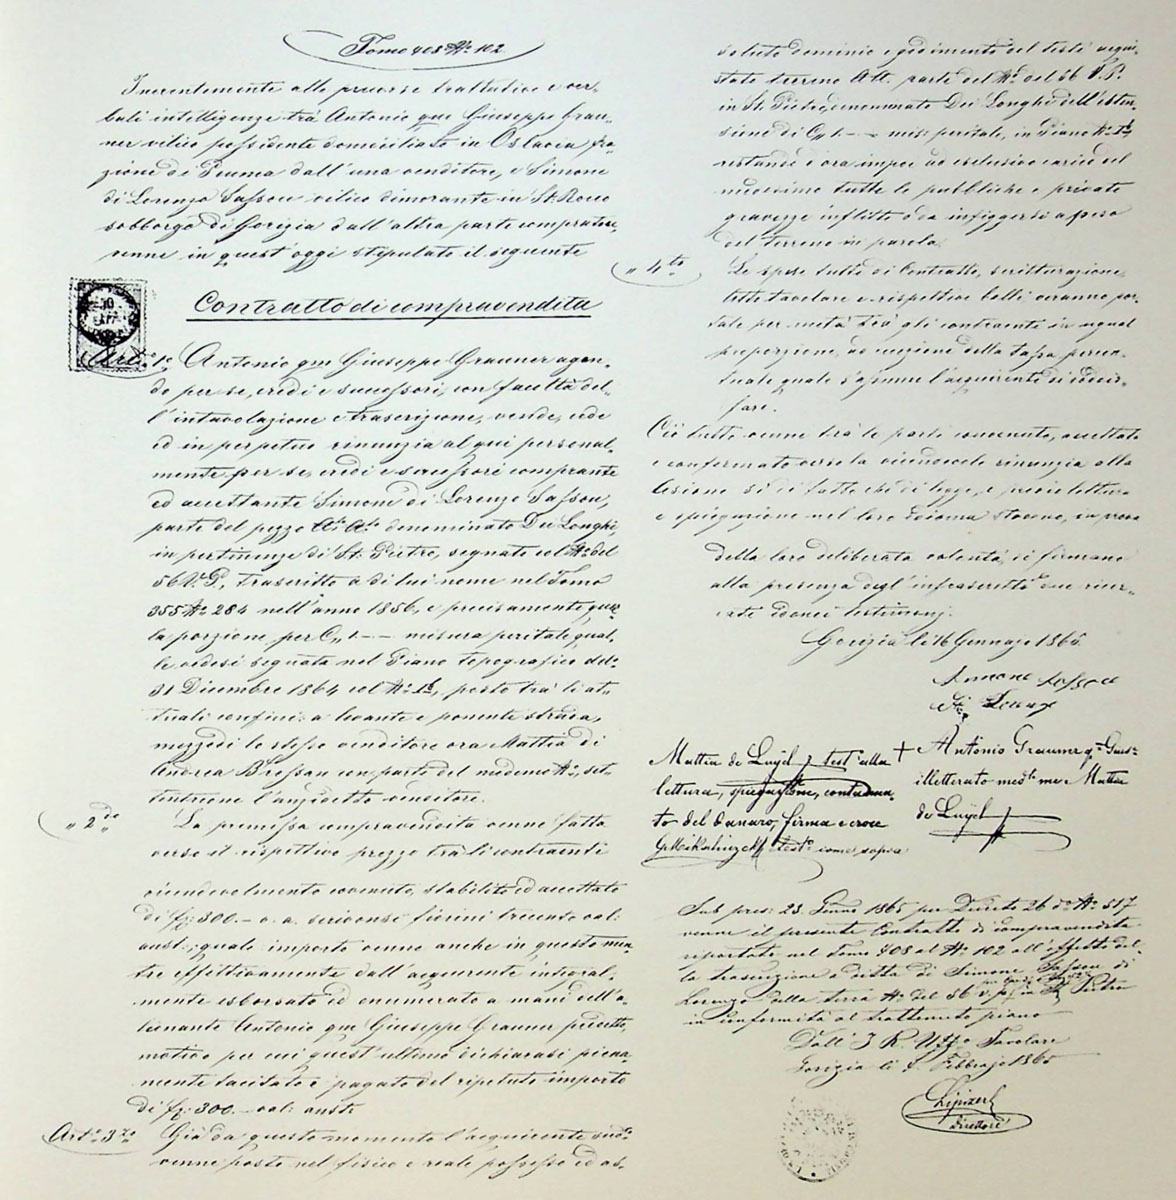 Tomo 408 No 102
Inerentemente alle precorse trattative e ver-
bali intelligenze trà Antonio qm Giuseppe Grau-
ner vilico possidente domiciliato in Oslavia fra-
zione di Peuma dall'una venditore, e Simone
di Lorenzo Sassou vilico dimorante in St. Rocco
sobborgo di Gorizia dall'altra parte compratore,
venne in quest'oggi stipulato il seguente
Contratto di compravendita
Arto 1o Antonio qm Giuseppe Grauner agen-
do per se, eredi e successori, con facoltà del-
l'intavolazione e trascrizione, vende, cede
ed in perpetuo rinunzia al qui personal-
mente per se, eredi e successori comprante
ed accettante Simone di Lorenzo Sassou,
parte del pezzo denominato Dei Longhi,
in pertinenze di St. Pietro, segnato col No del
56 V. P., trascritto a di lui nome nel Tomo
355 No 284 nell'anno 1856, e precisamente quel-
la porzione per C. 1.-- misura peritale, qua-
le vedesi segnata nel Piano topografico ddo
31 Dicembre 1864 col No Ib, posto trà li at-
tuali confini: a levante e ponente strada,
mezzodi lo stesso venditore ora Mattia di
Andrea Bressan con parte del medemo No, set-
tentrione l'anzidetto venditore.
" 2do " La premessa compravendita venne fatta
verso il rispettivo prezzo trà li contraenti
vicendevolmente convenuto, stabilito ed accettato
di f. 300.- v. a. serivonsi fiorini trecento val:
aust:, quale importo venne anche in questo men-
tre effettivamente dall'acquirente integral-
mente esborsato ed enumerato a mani dell'a-
lienante Antonio qm Giuseppe Grauner predetto,
motivo per cui quest'ultimo dichiarasi piena-
mente tacitato e pagato del ripetuto importo
di f. 300.- val: aust:
Arto 3zo Già da questo momento l'acquirente sudo
venne posto nel fisico e reale possesso ed as-
soluto dominio e godimento del testé acqui-
stato terreno Att. parte del No del 56 V. P.
in St. Pietro, denominato Dei Longhi dell'esten-
sione di C. 1.-- mis: peritale, in Piano No Ib,
restando d'ora impoi ad esclusivo carico del
medesimo tutte le pubbliche e private
gravezze inflitte o da infiggersi a peso
del terreno in parola.
" 4to " Le spese tutte di Contratto, scritturazione,
tasse tavolare e rispettive bolli veranno por-
tate per metà trà gli contraenti in egual
proporzione, ad eccezione della tassa percen-
tuale quale s'assume l'acquirente di soddis-
fare.
Ciò tutto venne trà le parti convenuto, accettato
e confermato verso la vicendevole rinunzia alla
lesione si di fatto che di legge, e previa lettura
e spiegazione nel loro idioma slaveno, in prova
della loro deliberata volontà, si firmano
alla presenza degl'infrascritti due ricer-
cati idonei testimonj.
Gorizia li 16 Gennajo 1865
Simone Sassou
di Lorenz
Mattia de Luyel test alla
lettura, spiegazione, contamina-
to del danaro, firma e croce
G. Mikschiczek test. come sopra
+ Antonio Grauner qm Gius.
illetterato medte me Mattia
de Luyel
Sub pres: 23. Genno 1865 per Decreto 26 do No 517
venne il presente Contratto di compravendita
riportato nel Tomo 408 al No 102 all'effetto del-
la trascrizione a ditta di Simone Sassou di
Lorenzo della terra No del 56 V. P. in St. Pietro
in conformità al trattenuto piano
Dall'I. R. Uffo Tavolare
Gorizia li Febbrajo 1865
Lipizer
Direttore